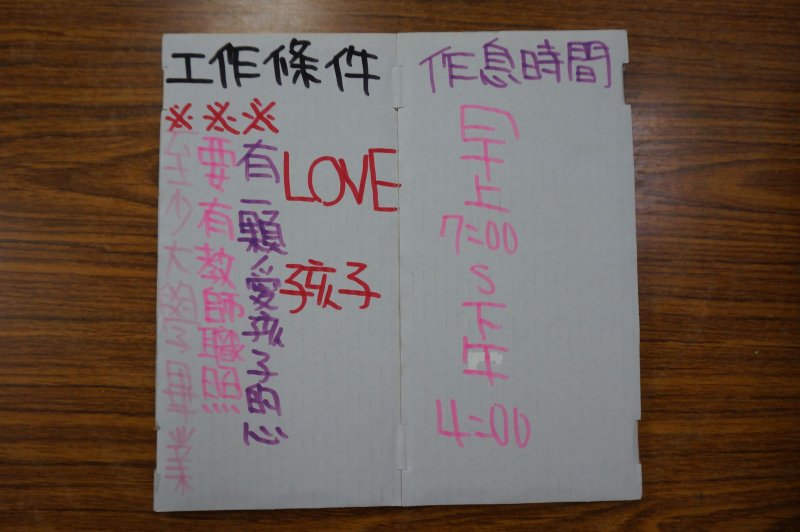 工作條件
※有一顆愛孩子的心
※要有教師職照
※至少大學畢業
LOVE
孩子
作息時間
早上
7:00
S
下午
4:00